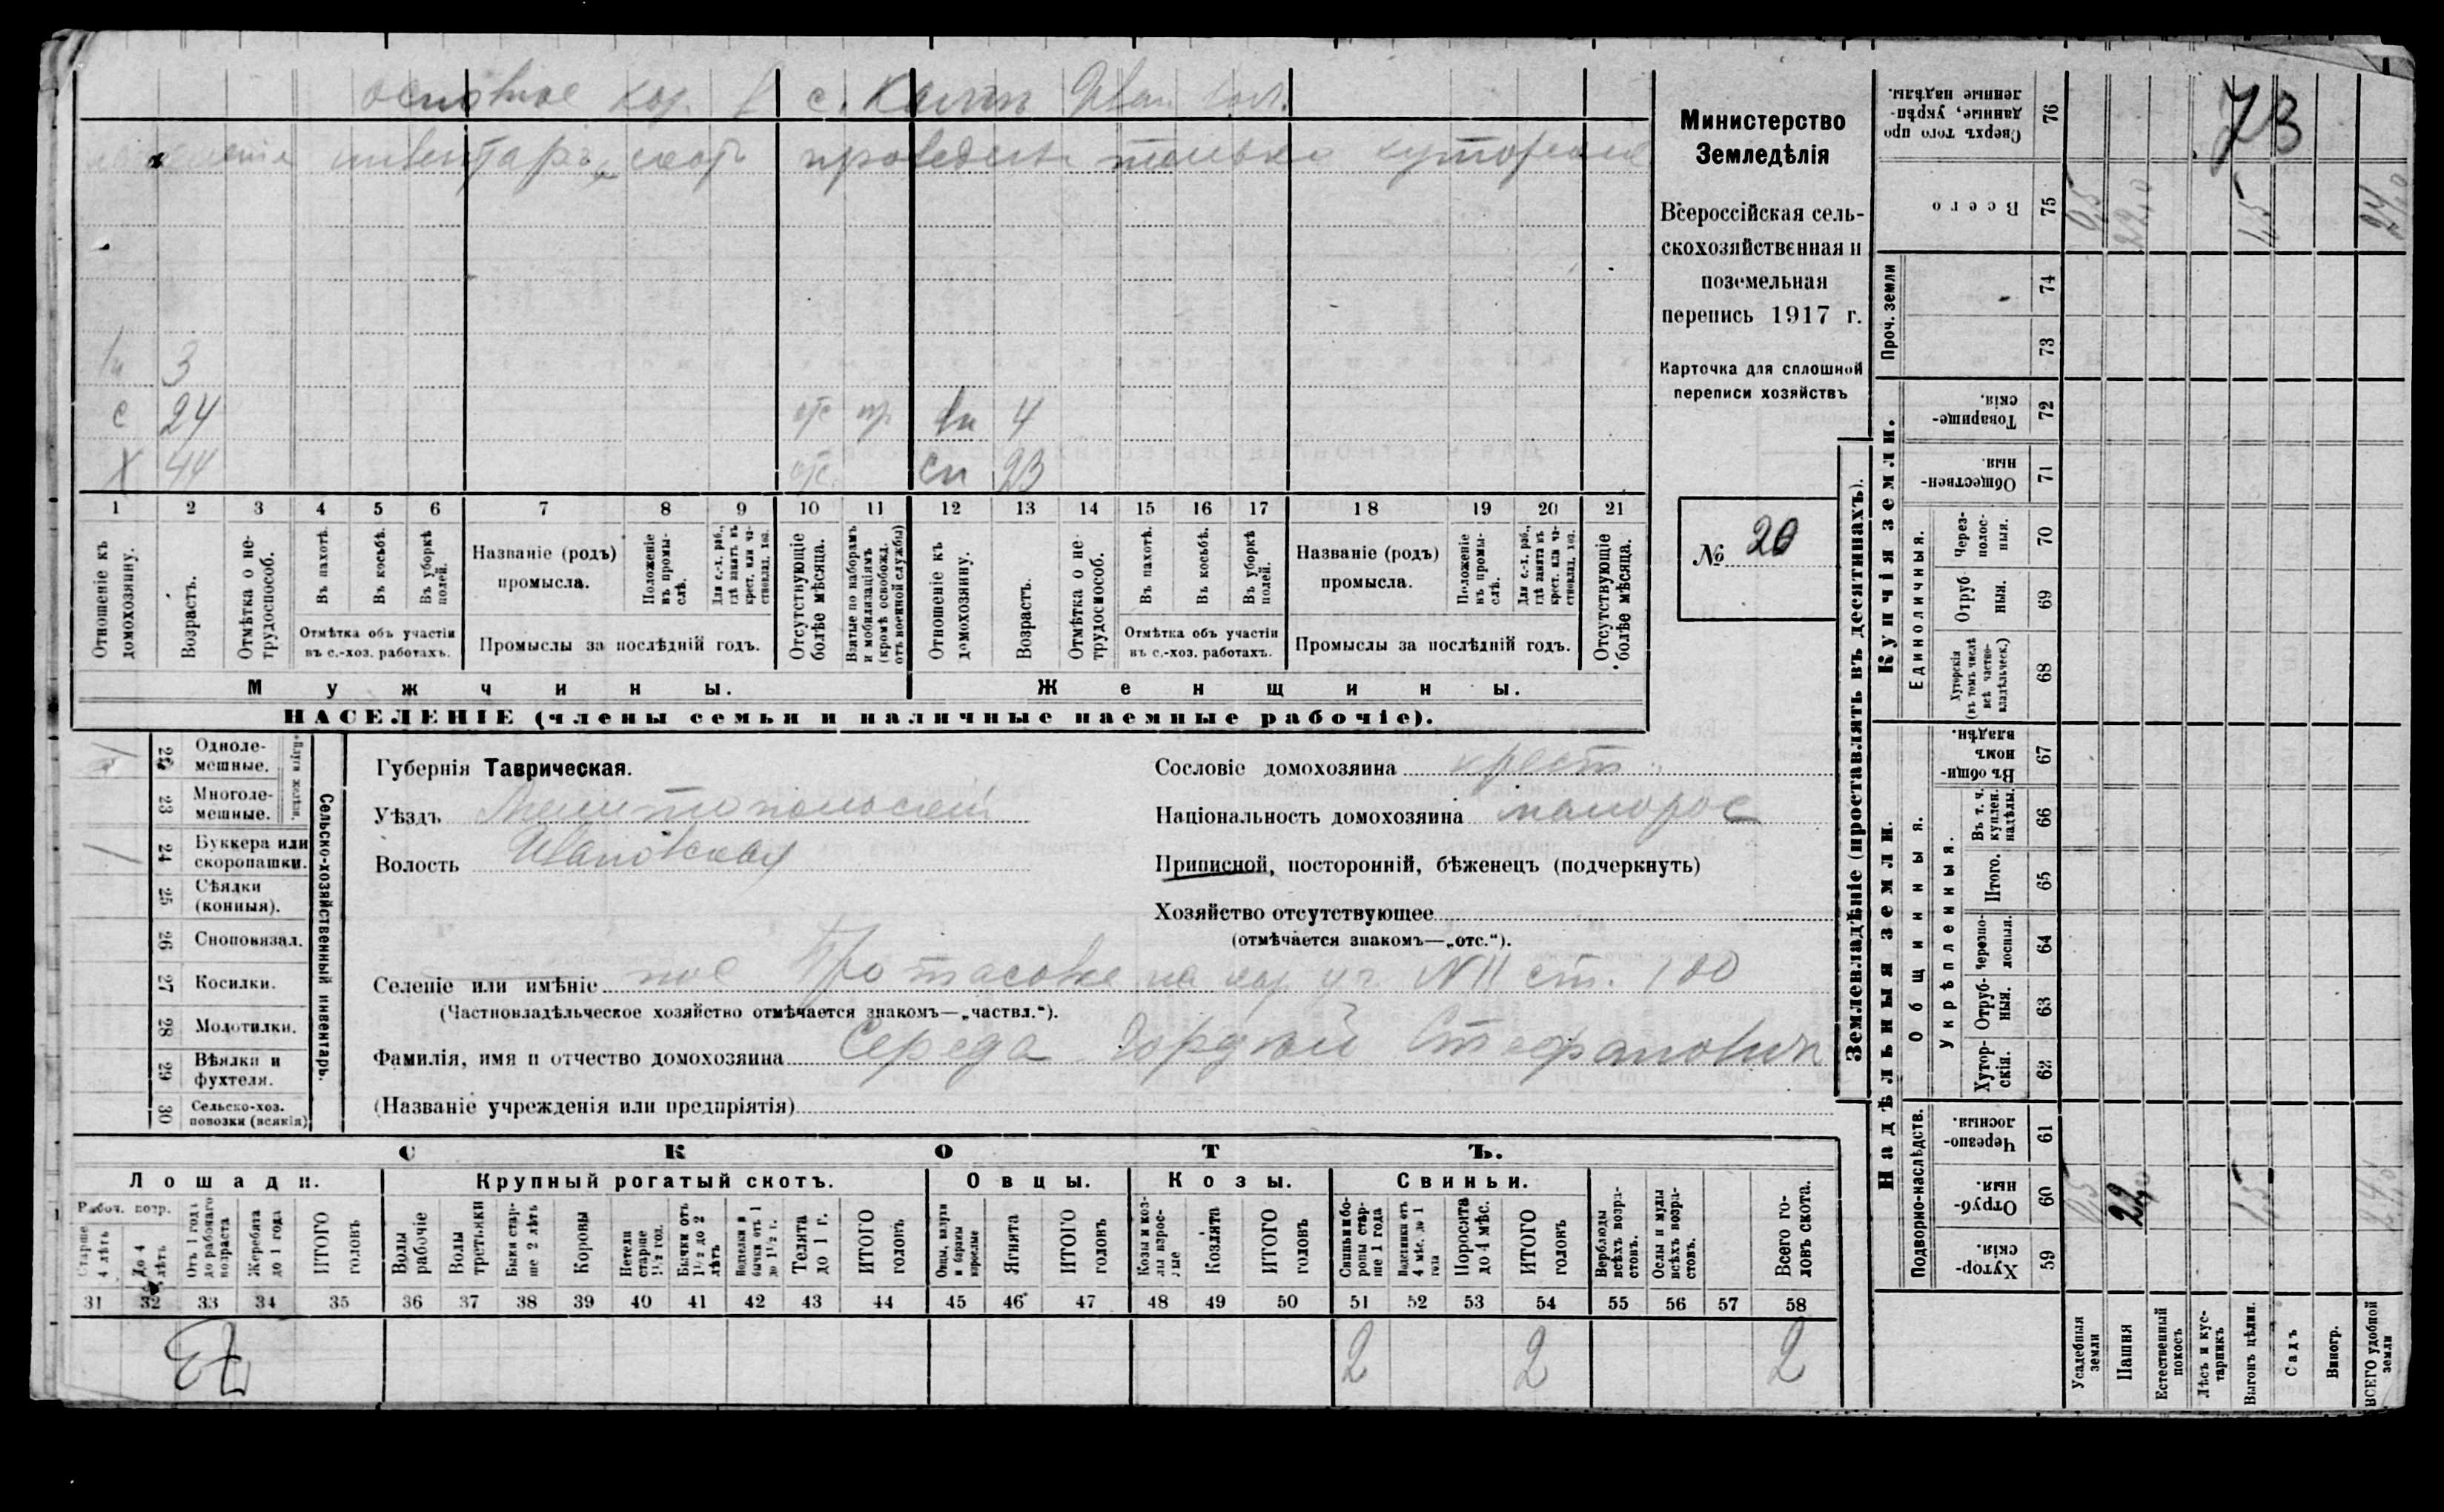 основное хоз. в с. Иван. вол.
инвентарь, скот только
вн 3
с 24 отс. вн 4
х 44 отс. сн 23
1 2 3 4 5 6 7 8 9 10 11 12 13 14 15 16 17 18 19 20 21
Отношеніе къ домохозяину.
Возрастъ.
Отмѣтка о нетрудоспособ.
Въ пахотѣ.
Въ косьбѣ.
Въ уборкѣ полей.
Отмѣтка объ участіи въ с.-хоз. работахъ.
Названіе (родъ) промысла.
Положеніе въ промыслѣ.
Для с.-х. раб., гдѣ занятъ въ крест. или частновлад. хоз.
Промыслы за послѣдній годъ.
Отсутствующіе болѣе мѣсяца.
Взятые по наборамъ и мобилизаціямъ (кромѣ освобожд. отъ военной службы)
Отношеніе къ домохозяину.
Возрастъ.
Отмѣтка о нетрудоспособ.
Въ пахотѣ.
Въ косьбѣ.
Въ уборкѣ полей.
Отмѣтка объ участіи въ с.-хоз. работахъ.
Названіе (родъ) промысла.
Положеніе въ промыслѣ.
Для с.-х. раб., гдѣ занята въ крест. или частновлад. хоз.
Промыслы за послѣдній годъ.
Отсутствующіе болѣе мѣсяца.
Мужчины.
Женщины.
НАСЕЛЕНІЕ (члены семьи и наличные наемные рабочіе).
Министерство
Земледѣлія
Всероссійская сель-
скохозяйственная и
поземельная
перепись 1917 г.
Карточка для сплошной
переписи хозяйствъ
№ 20
22 Однолемешные.
23 Многолемешные.
24 Буккера или скоропашки.
25 Сѣялки (конныя).
26 Сноповязал.
27 Косилки.
28 Молотилки.
29 Вѣялки и фухтеля.
30 Сельско-хоз. повозки (всякія)
Плуги желѣзн.
Сельско-хозяйственный инвентарь.
Губернія Таврическая.
Уѣздъ Мелитопольскій
Волость Ивановская
Сословіе домохозяина крест.
Національность домохозяина малорос
Приписной, посторонній, бѣженецъ (подчеркнуть)
Хозяйство отсутствующее
(отмѣчается знакомъ—„отс.“).
Селеніе или имѣніе пос Протасовке на хоз уч N 11 ст. 100
(Частновладѣльческое хозяйство отмѣчается знакомъ—„частвл.“).
Фамилія, имя и отчество домохозяина Середа Гордѣй Стефановичъ
(Названіе учрежденія или предпріятія)
СКОТЪ.
Лошади.
Крупный рогатый скотъ.
Овцы.
Козы.
Свиньи.
Рабоч. возр.
Старше 4 лѣтъ
До 4 лѣтъ
Отъ 1 года до рабочаго возраста
Жеребята до 1 года
ИТОГО головъ
Волы рабочіе
Волы третьяки
Быки старше 2 лѣтъ
Коровы
Нетели старше 1½ год.
Бычки отъ 1½ до 2 лѣтъ
Водялки и бычки отъ 1 до 1½ г.
Телята до 1 г.
ИТОГО головъ
Овцы, валухи и бараны взрослые
Ягнята
ИТОГО головъ
Козы и козлы взрослые
Козлята
ИТОГО головъ
Свиньи и боровы старше 1 года
Подсвинки отъ 4 мѣс. до 1 года
Поросята до 4 мѣс.
ИТОГО головъ
Верблюды всѣхъ возрастовъ.
Ослы и мулы всѣхъ возрастовъ.
Всего головъ скота.
31 32 33 34 35 36 37 38 39 40 41 42 43 44 45 46 47 48 49 50 51 52 53 54 55 56 57 58
2 2 2
Землевладѣніе (проставлять въ десятинахъ).
Надѣльныя земли.
Купчія земли.
Проч. земли
Подворно-наслѣдств.
Общинныя.
Укрѣпленныя.
Единоличныя.
76 Сверхъ того проданные, укрѣпленные надѣлы.
75 Всего
74
73
72 Товарищескія.
71 Общественныя.
70 Черезполосныя.
69 Отрубныя.
68 Хуторскія (въ томъ числѣ всѣ частновладѣльческ.)
67 Въ общинномъ владѣн.
66 Въ т. ч. куплен. надѣлы.
65 Итого.
64 Черезполосныя.
63 Отрубныя.
62 Хуторскія.
61 Черезполосныя.
60 Отрубныя.
59 Хуторскія.
Усадебныя земли
Пашня
Естественный покосъ
Лѣсъ и кустарникъ
Выгонъ цѣлин.
Садъ
Виногр.
ВСЕГО удобной земли
73
0,5 22,0 1,5 24,0
0,5 22,0 1,5 24,0